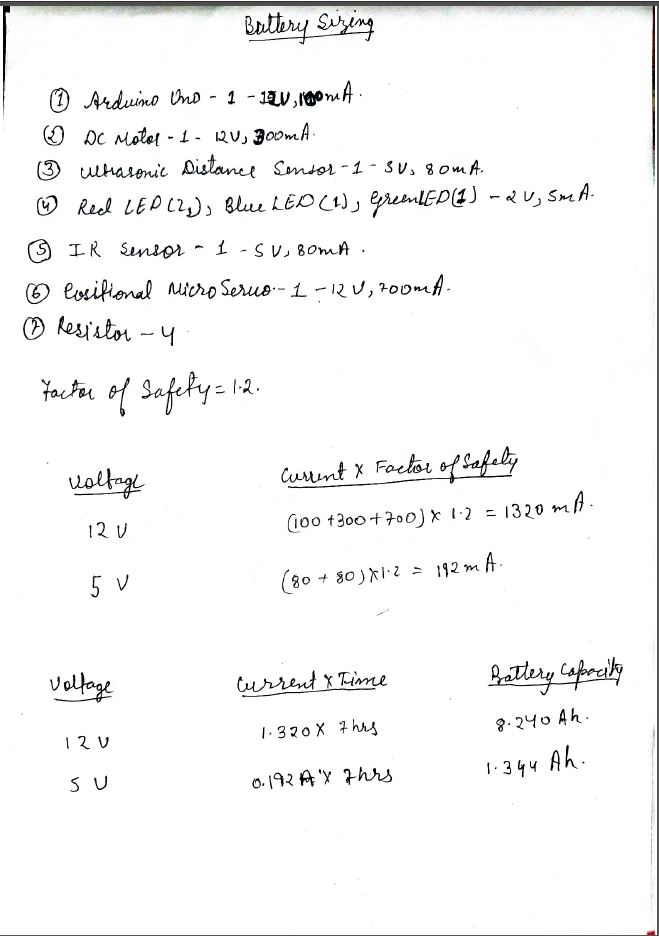 Battery Sizing
① Arduino Uno - 1 - 12V, 100mA.
② DC Motor - 1 - 12V, 300mA.
③ Ultrasonic Distance Sensor - 1 - 5V, 80mA.
④ Red LED (2), Blue LED (1), Green LED (1) - 2V, 5mA.
⑤ IR Sensor - 1 - 5V, 80mA.
⑥ Positional Micro Servo - 1 - 12V, 700mA.
⑦ Resistor - 4
Factor of Safety = 1.2.
Voltage Current X Factor of Safety
12 V (100 + 300 + 700) X 1.2 = 1320 mA.
5 V (80 + 80) X 1.2 = 192 mA.
Voltage Current X Time Battery Capacity
12 V 1.320 X 7 hrs 8.240 Ah.
5 V 0.192 A X 7 hrs 1.344 Ah.